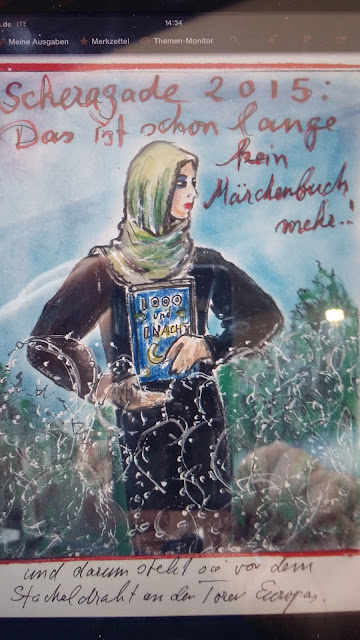 .de LTE 14:34
Meine Ausgaben ★ Merkzettel Themen-Monitor
Scheragade 2015:
Das ist schon lange
kein
Märchenbuch
mehr..!
1000
und
1 NACHT
und darum steht sie vor dem
Stacheldraht an den Toren Europas.